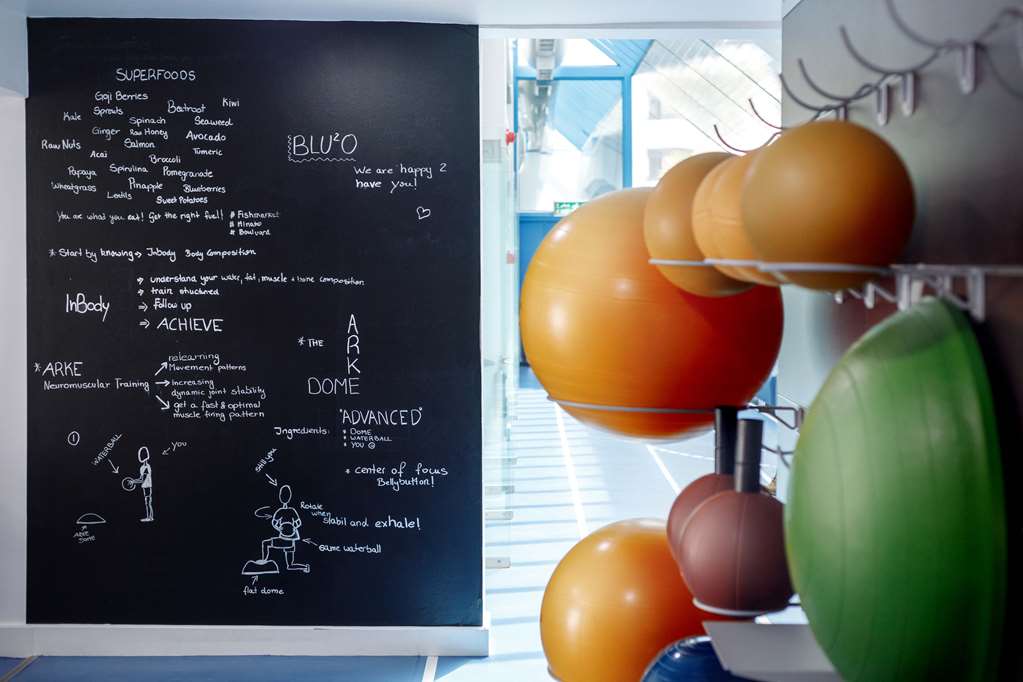 SUPERFOODS
Goji Berries
Kale Sprouts Beetroot Kiwi
Spinach Seaweed
Ginger Raw Honey Avocado
Raw Nuts Salmon
Acai Broccoli Tumeric
Papaya Spirulina Pomegranate
Wheatgrass Pineapple Blueberries
Lentils Sweet Potatoes
You are what you eat! Get the right fuel! # Fishmarket
# Minato
# Boulvard
* Start by knowing → Inbody Body Composition
InBody
⇒ understand your water, fat, muscle + bone composition
⇒ train structured
⇒ follow up
⇒ ACHIEVE
* ARKE
Neuromuscular Training
relearning
Movement patterns
increasing
dynamic joint stability
get a fast & optimal
muscle firing pattern
①
WATERBALL
YOU
ARKE
DOME
BLU²O
We are happy 2
have you!
* THE
ARKE
DOME
"ADVANCED"
Ingredients:
* DOME
* WATERBALL
* YOU ☺
* center of focus
Bellybutton!
still you
Rotate
when
stabil and exhale!
same waterball
flat dome